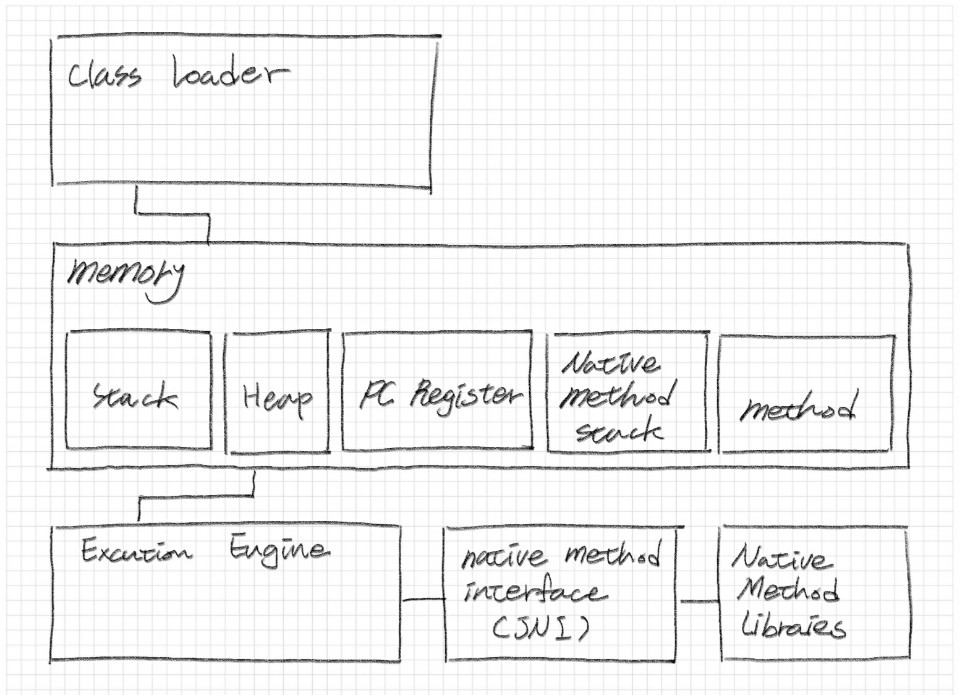 Class loader
memory
Stack
Heap
PC Register
Native
method
stack
method
Excution Engine
native method
interface
(JNI)
Native
Method
Libraies